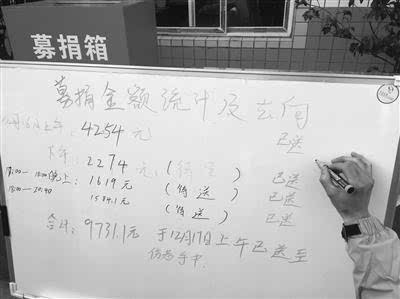 募捐箱
募捐金额统计及去向
12月16日上午: 4254元 已送
下午: 2274元 (待送) 已送
17:00—18:00 晚上: 1619元 (待送) 已送
18:00—20:40 1584.1元 (待送) 已送
合计: 9731.1元 于12月17日上午已送至
伤者手中.